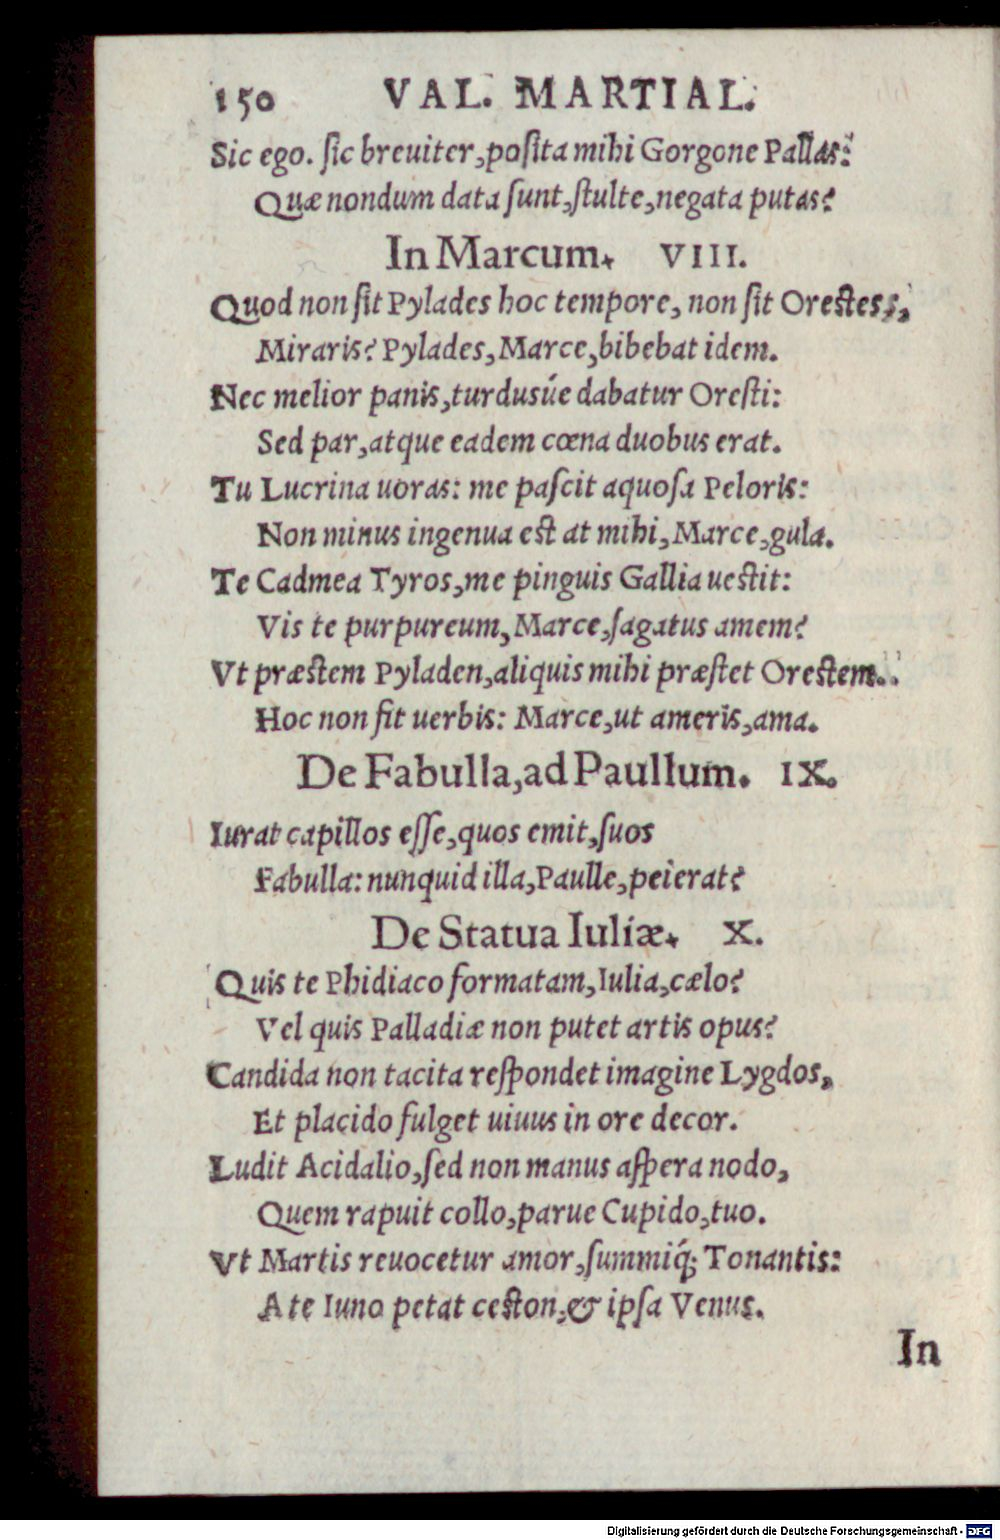 150 VAL. MARTIAL.
Sic ego. ſic breuiter, poſita mihi Gorgone Pallas:
Quæ nondum data ſunt, ſtulte, negata putas?
In Marcum. VIII.
Quod non ſit Pylades hoc tempore, non ſit Orestes,
Miraris? Pylades, Marce, bibebat idem.
Nec melior panis, turdusúe dabatur Oreſti:
Sed par, atque eadem cœna duobus erat.
Tu Lucrina uoras: me paſcit aquoſa Peloris:
Non minus ingenua est at mihi, Marce, gula.
Te Cadmea Tyros, me pinguis Gallia uestit:
Vis te purpureum, Marce, ſagatus amem?
Vt præstem Pyladen, aliquis mihi præſtet Orestem.
Hoc non fit uerbis: Marce, ut ameris, ama.
De Fabulla, ad Paullum. IX.
Iurat capillos eſſe, quos emit, ſuos
Fabulla: nunquid illa, Paulle, peierat?
De Statua Iuliæ. X.
Quis te Phidiaco formatam, Iulia, cælo?
Vel quis Palladiæ non putet artis opus?
Candida non tacita reſpondet imagine Lygdos,
Et placido fulget uiuus in ore decor.
Ludit Acidalio, ſed non manus aſpera nodo,
Quem rapuit collo, parue Cupido, tuo.
Vt Martis reuocetur amor, ſummiq́; Tonantis:
A te Iuno petat ceston, & ipſa Venus.
In
Digitalisierung gefördert durch die Deutsche Forschungsgemeinschaft - DFG